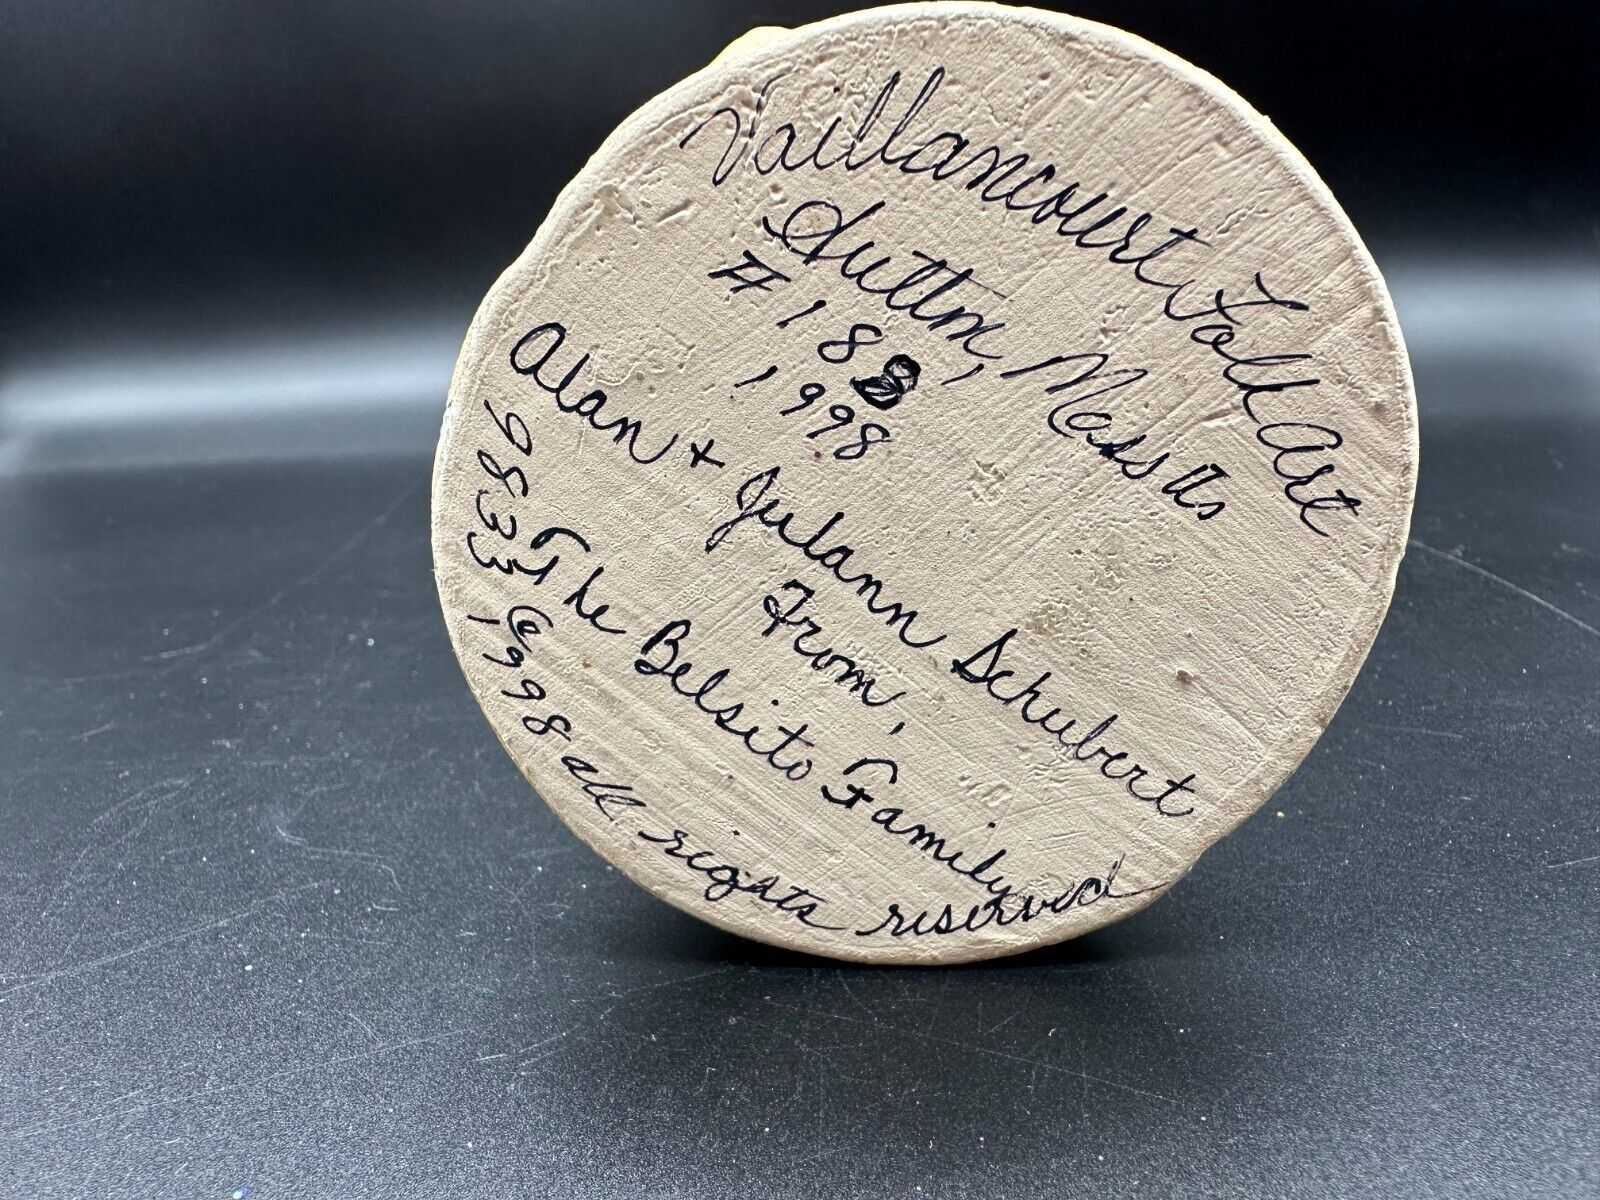 Vaillancourt Folk Art
Sutton, Mass
# 188
1998
Alan + Julann Schubert
From,
The Belsito Family
9833 © 1998 all rights reserved